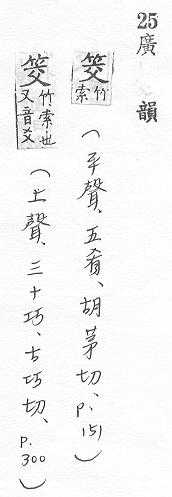 25 廣韻
筊竹索（平聲、五肴、胡茅切、p.151）
筊竹索也又音爻（上聲、三十巧、古巧切、p.300）